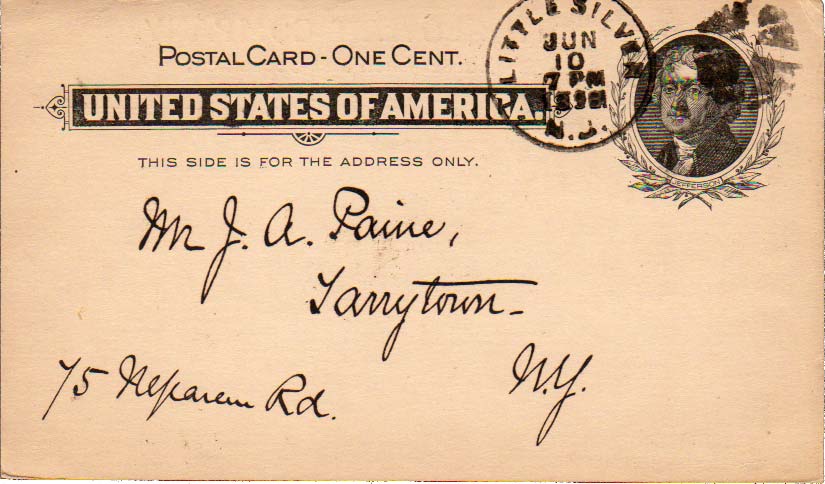 POSTAL CARD - ONE CENT.
UNITED STATES OF AMERICA.
THIS SIDE IS FOR THE ADDRESS ONLY.
LITTLE SILVER
JUN
10
7 PM
N.J.
JEFFERSON
Mr J. A. Paine,
Tarrytown-
N.Y.
75 Rd.